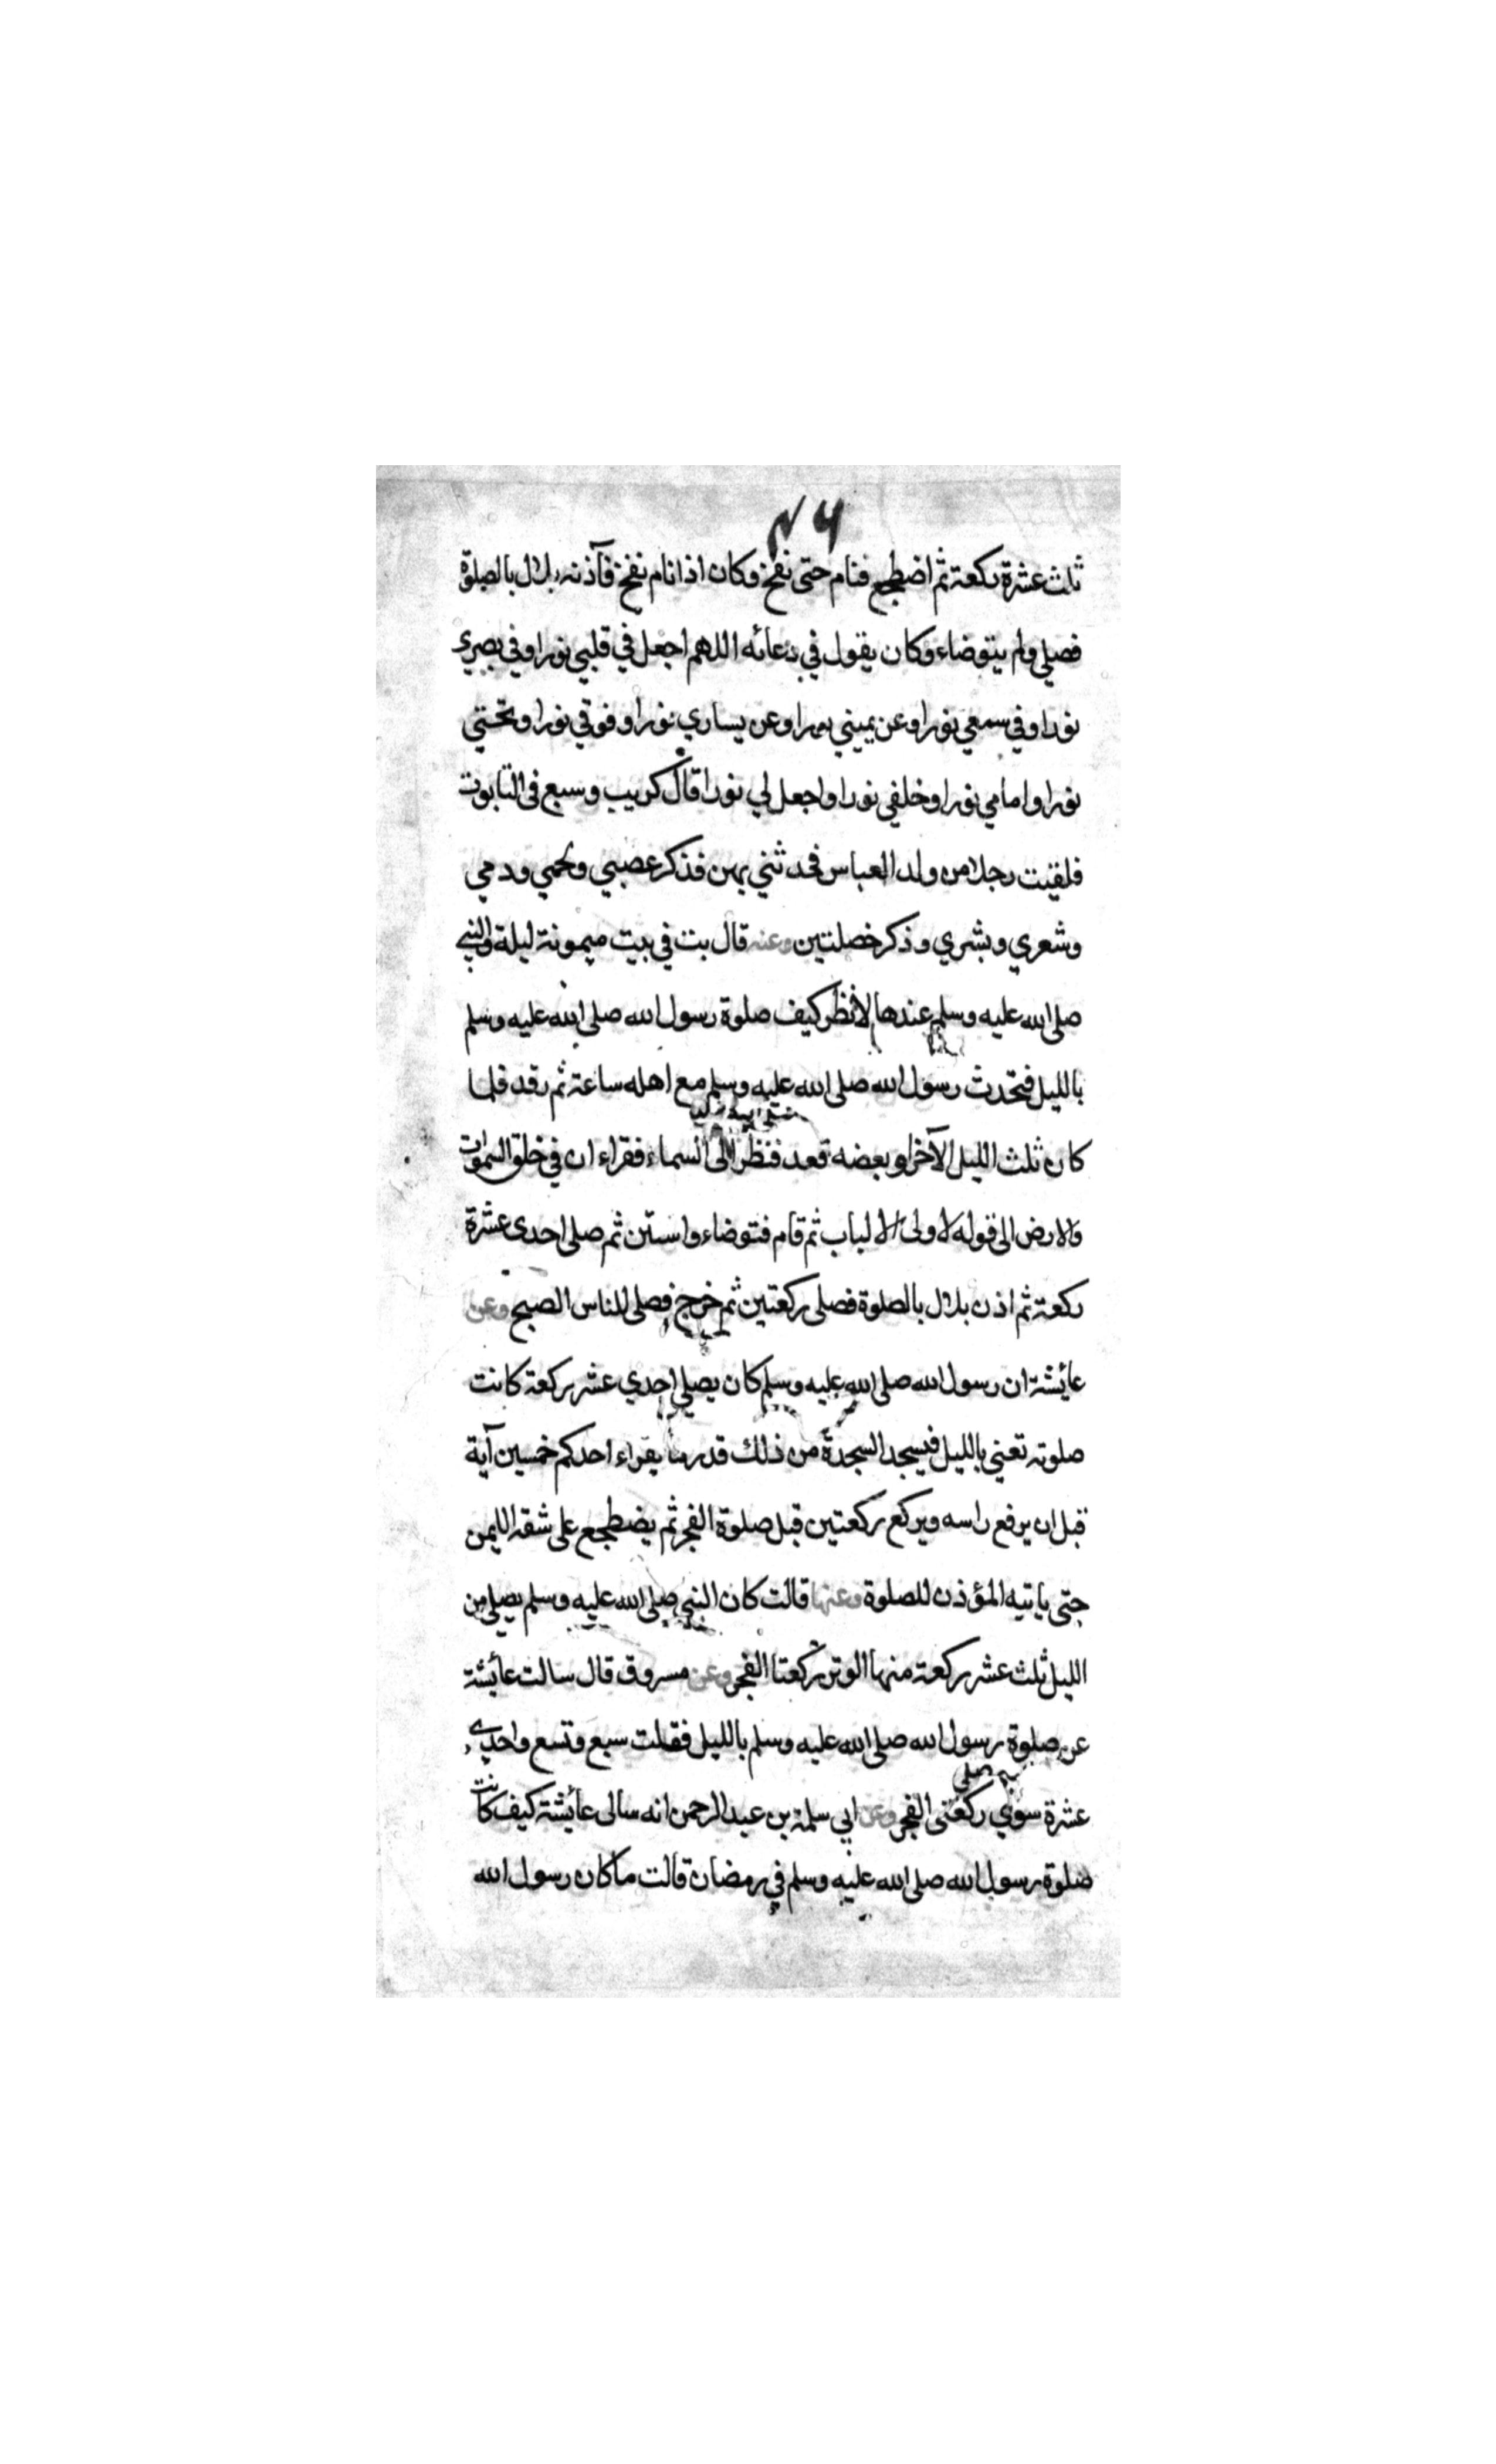 ثلث عشرة ركعة ثم اضطجع فنام حتى نفخ وكان اذا نام نفخ فآذنه بلال بالصلوة
فصلى ولم يتوضاء وكان يقول في دعائه اللهم اجعل في قلبي نورا وفي بصري
نورا وفي سمعي نورا وعن يميني نورا وعن يساري نورا وفوقي نورا وتحتي
نورا وامامي نورا وخلفي نورا واجعل لي نورا قال كريب وسبع في التابوت
فلقيت رجلا من ولد العباس فحدثني بهن فذكر عصبي ولحمي ودمي
وشعري وبشري وذكر خصلتين وعنه قال بت في بيت ميمونة ليلة والنبي
صلى الله عليه وسلم عندها لانظر كيف صلوة رسول الله صلى الله عليه وسلم
بالليل فتحدث رسول الله صلى الله عليه وسلم مع اهله ساعة ثم رقد فلما
كان ثلث الليل الآخر او بعضه قعد فنظر الى السماء فقراء ان في خلق السموات
والارض الى قوله لاولى الالباب ثم قام فتوضاء واستن ثم صلى احدى عشرة
ركعة ثم اذن بلال بالصلوة فصلى ركعتين ثم خرج فصلى للناس الصبح وعن
عايشة ان رسول الله صلى الله عليه وسلم كان يصلي احدي عشر ركعة كانت
صلوته تعني بالليل فيسجد السجدة من ذلك قدر ما يقراء احدكم خمسين آية
قبل ان يرفع راسه ويركع ركعتين قبل صلوة الفجر ثم يضطجع على شقه اليمن
حتى ياتيه المؤذن للصلوة وعنها قالت كان النبي صلى الله عليه وسلم يصلي من
الليل ثلث عشر ركعة منها الوتر ركعتا الفجر وعن مسروق قال سالت عائشة
عن صلوة رسول الله صلى الله عليه وسلم بالليل فقلت سبع وتسع واحدي
عشرة سوي ركعتى الفجر وعن ابي سلمة بن عبد الرحمن انه سالى عائشة كيف كانت
صلوة رسول الله صلى الله عليه وسلم في رمضان قالت ما كان رسول الله